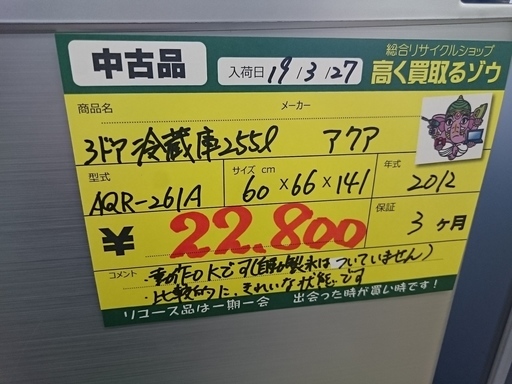 中古品
入荷日 19/3/27
総合リサイクルショップ
高く買取るゾウ
商品名
メーカー
3ドア冷蔵庫255l アクア
型式
サイズcm
年式
AQR-261A 60×66×141 2012
¥22.800
保証 3ヶ月
コメント
・動作OKです(自動製氷はついていません)
・比較的に、きれいな状態です
リユース品は一期一会 出会った時が買い時です!